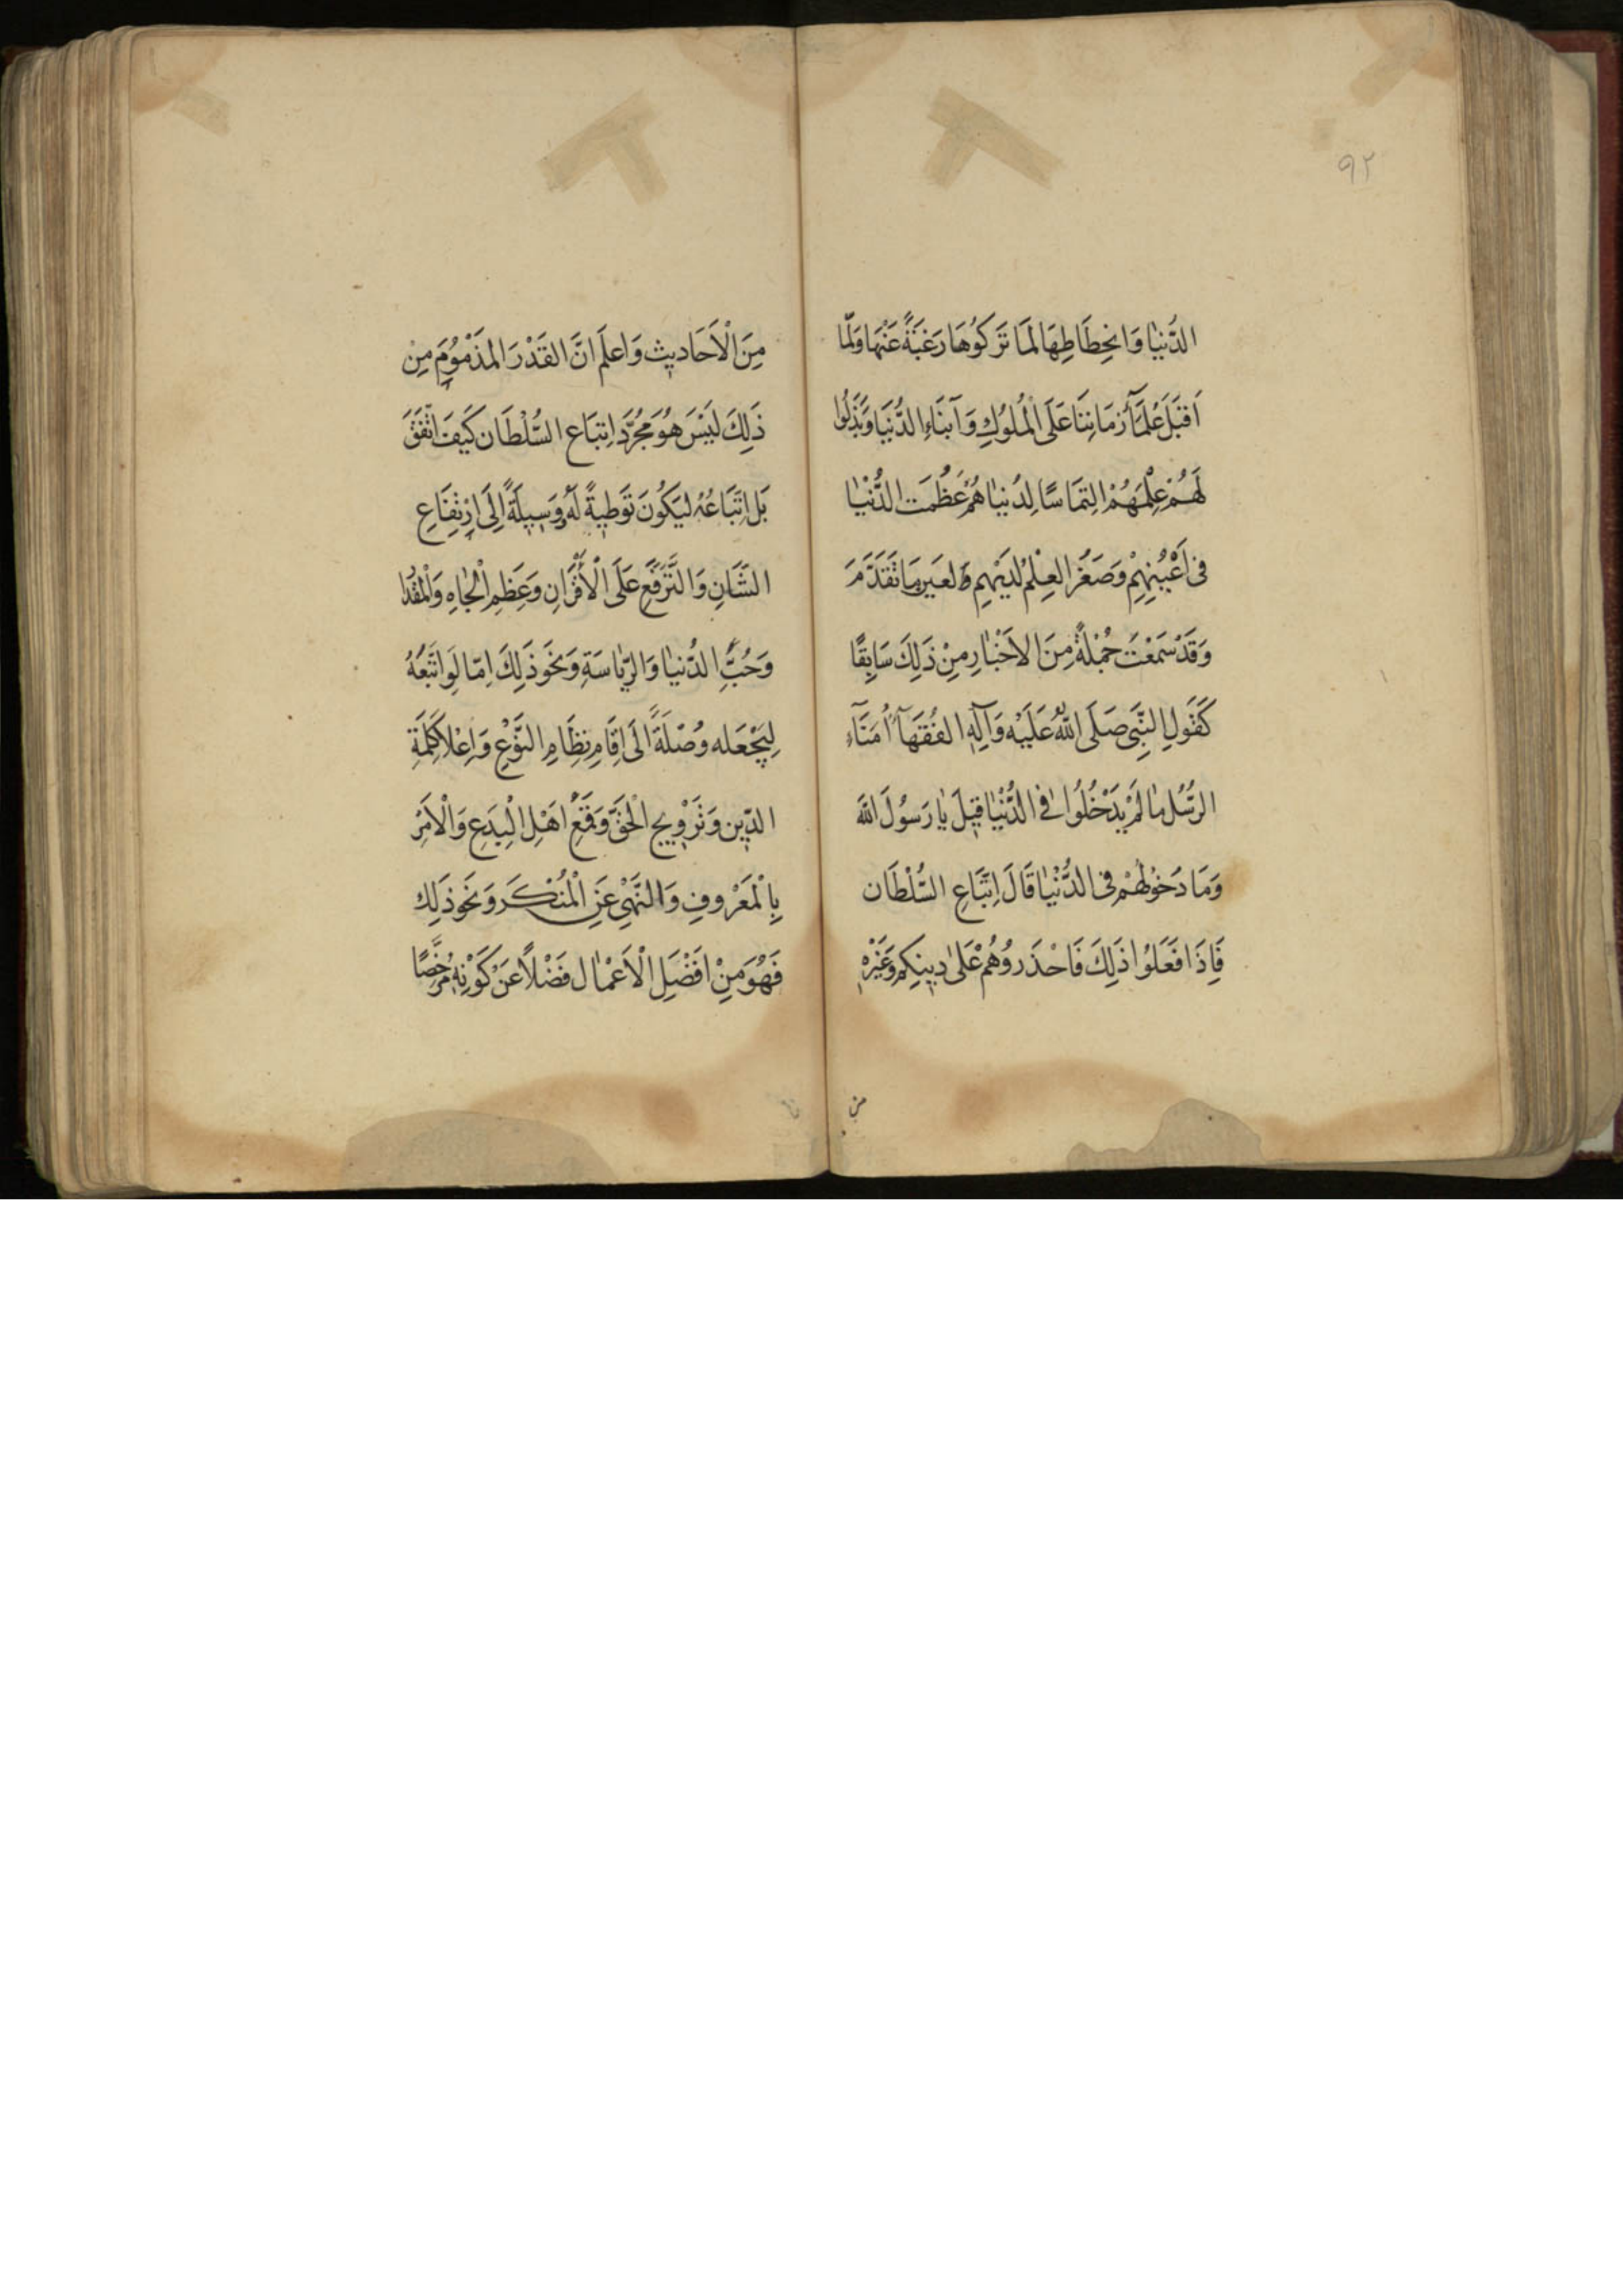 ٩٢
الدُّنیٰا وَانحِطَاطِهَا لَمَا تَرَكوُهَا رَغبَةً عَنْهَا وَلَمّا
اَقبَلَ عُلَمَآءُ زمَانِنَا عَلَی الْمُلوُكِ وَآبنَاءِ الدُّنیَا وَبَذَلُوا
لَهُمْ عِلْمَهُمْ اِلتِمَاسًا لِدُنیٰا هُمْ عَظُمَت الدُّنْیٰا
فی اَعْیُنِهِمْ وَصَغُرَ العِلْمُ لدَیهِمِ لعَینِ مَا تَقَدَّمَ
وَقَدْ سَمَعْتَ جُمْلَةً مِنَ الاَخْبٰارِ مِنْ ذَلِكَ سَابِقًا
كَقَولِ النَّبِی صَلَی اللّٰهُ عَلَیْه وَآلِهِ الفُقَهَآءُ اُمَنَآءِ
الرسُّلِ مٰا لَمْ یَدْخُلُوا فی الدُّنْیٰا قیٖلَ یٰا رَسُولَ الله
وَمَا دَخوُلُهُمْ فی الدُّنْیٰا قَالَ اِتِّبَاعِ السُّلْطَان
فَاِذَا فَعَلوُا ذَلِكَ فَاحْذَروُهُمْ عَلیٰ دیٖنِكِمِ وَغَیْرِهِ
من
مِنَ الْاَحَادیٖث وَاعلَم انَّ القَدْرَ المَذْمُومَ مِنْ
ذَلِكَ لَیَسْ هُوَ مُجرَّدَ اِتبَاعِ السُّلْطَان كَیَفَ اتَّفَقَ
بَل اِتّبَاعُهُ لیَكُونَ تَوَطیٖةً لَهُ وَسیٖلَةً اِلَی اِرْتِفَاعِ
الشَّانِ وَالتَّرَفُّعِ عَلَی الْأَقْرَانِ وَعِظَمِ الْجٰاهِ وَالْمقْدَا
وَحُبُّ الدُّنیٰا وَالرّیٰاسَةِ وَنَحَو ذَلِكَ اِمّا لَوِ اتَّبَعُهُ
لیَجْعَله وُصْلَةً الَی اِقَامِ نظَامِ النَّوْعِ وَاِعْلاَ كَلِمَةِ
الدّیٖن وَتَرْویٖج الْحَقّ وَقَمْعِ اَهْلِ الْبِدَعِ وَالْاَمْرِ
بِالْمَعْروُفِ وَالنَّهْیِ عَنِ الْمُنْكَر وَنَحَو ذَلِك
فَهُوَ مِنْ اَفْضَلِ الْاَعْمٰال فَضْلاً عَنْ كَوَنِهِ مُرَخَّصًا